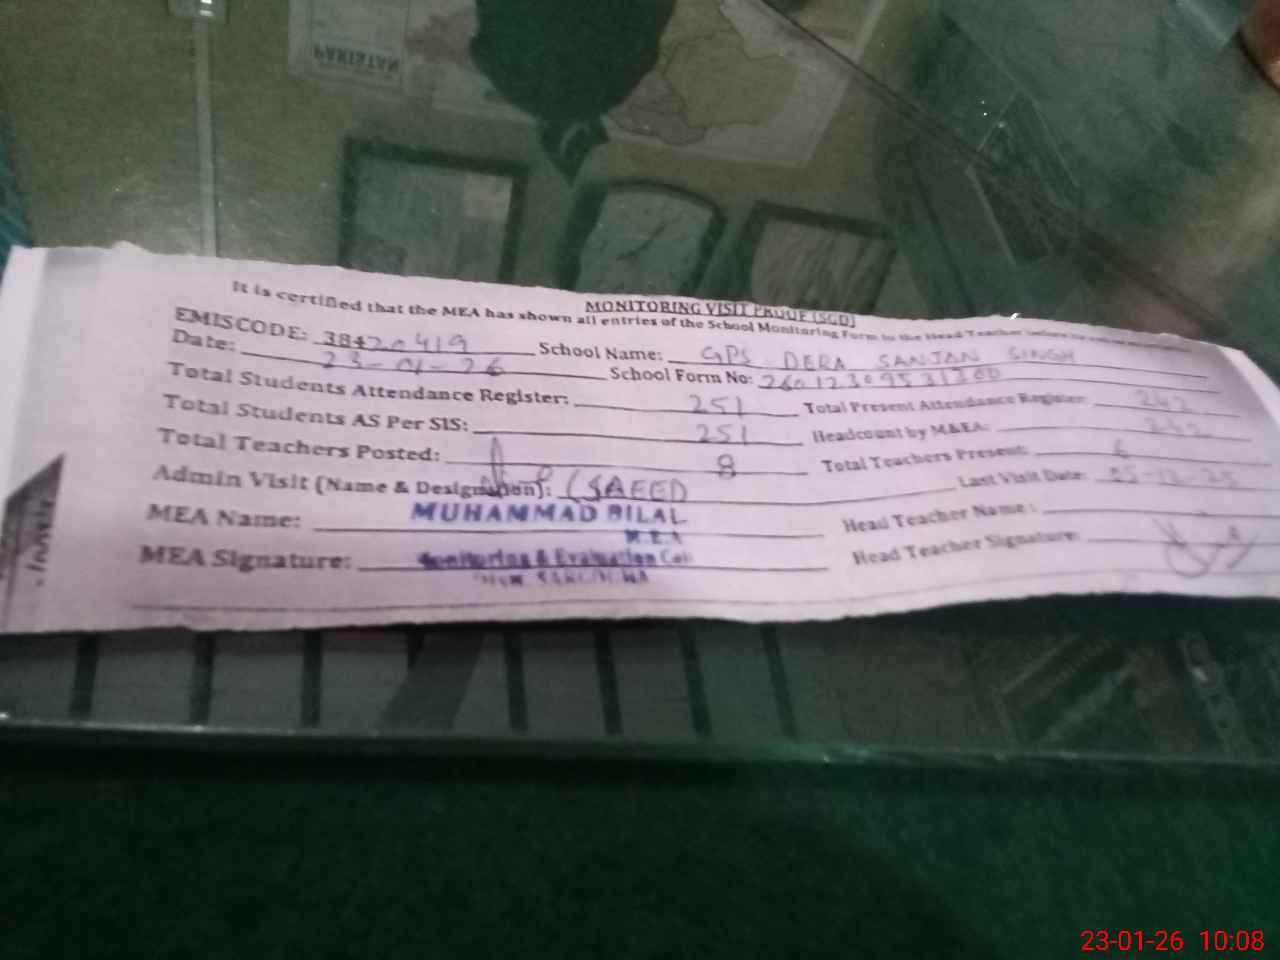 PAKISTAN
MONITORING VISIT PROOF (SGD)
It is certified that the MEA has shown all entries of the School Monitoring Form to the Head Teacher before
EMISCODE: 38420419 School Name: GPS DERA SANJAN SINGH
Date: 23-01-26 School Form No:
Total Students Attendance Register: 251 Total Present Attendance Register: 242
Total Students AS Per SIS: 251 Headcount by M&EA: 242
Total Teachers Posted: 8 Total Teachers Present: 6
Admin Visit (Name & Designation): (SAEED Last Visit Date: 05-12-25
MEA Name: MUHAMMAD BILAL Head Teacher Name:
M.E.A
MEA Signature: Monitoring & Evaluation Cell Head Teacher Signature:
23-01-26 10:08